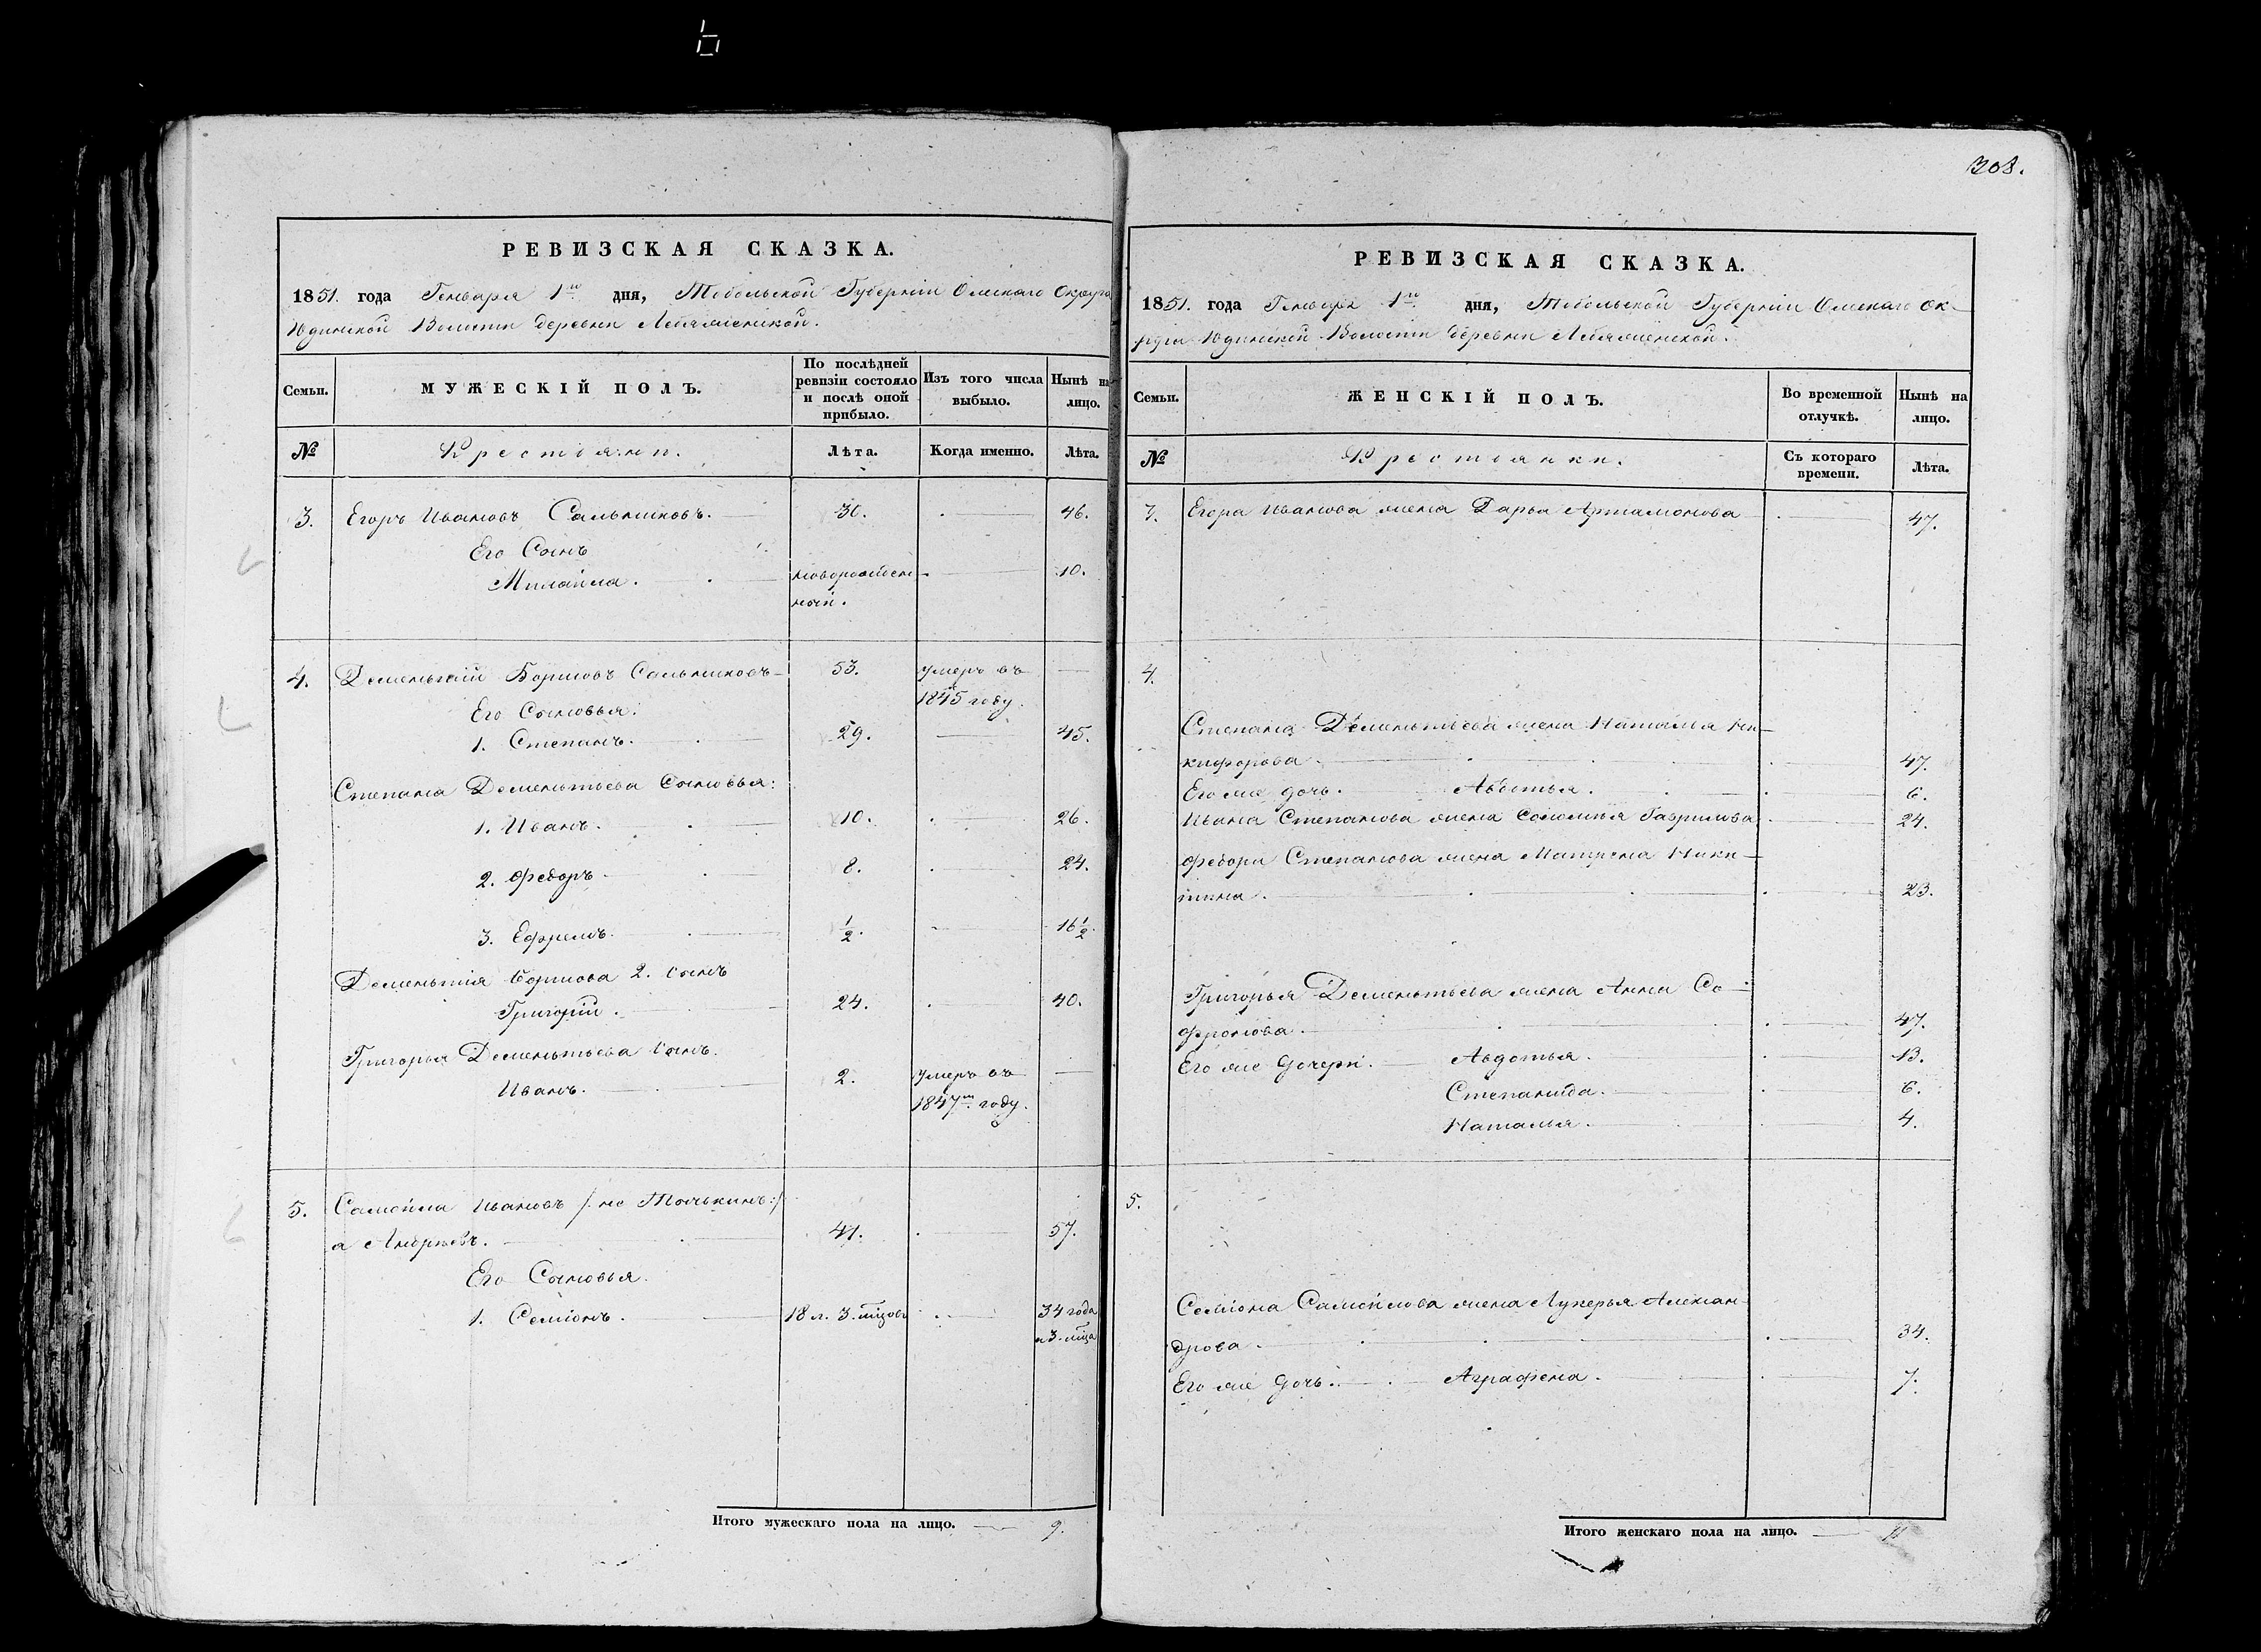 308.
РЕВИЗСКАЯ СКАЗКА.
1851. года Генваря 1го дня, Тобольской Губернiи Омскаго Округа
Юдинской Волости деревни Лебяженской.
Семьи.
МУЖЕСКІЙ ПОЛЪ.
По послѣдней ревизіи состояло и послѣ оной прибыло.
Изъ того числа выбыло.
Нынѣ на лицо.
№ Крестьяни. Лѣта. Когда именно. Лѣта.
3. Егоръ Ивановъ Сальниковъ. 30. 46.
Его Сынъ
Михайла. новорожден 10.
ный.
4. Дементій Борисовъ Сальниковъ 53. умеръ въ
1845 году.
Его Сыновья:
1. Степанъ. 29. 45.
Степана Дементьева Сыновья:
1. Иванъ. 10. 26.
2. Федоръ. 8. 24.
3. Ефремъ. 1/2. 16 1/2.
Дементія Борисова 2. сынъ
Григорій. 24. 40.
Григорья Дементьева сынъ.
Иванъ. 2. умеръ въ
1847м. году.
5. Самойла Ивановъ /: не Толькинъ:/
а Андреевъ. 41. 57.
Его Сыновья.
1. Семіонъ. 18 л. 3. мцовъ 34 года
и 3. мца
Итого мужескаго пола на лицо. 9.
РЕВИЗСКАЯ СКАЗКА.
1851. года Генваря 1го дня, Тобольской Губерніи Омскаго Ок-
руга Юдинской Волости деревни Лебяженской.
Семьи.
ЖЕНСКІЙ ПОЛЪ.
Во временной отлучкѣ.
Нынѣ на лицо.
№ Крестьянки. Съ котораго времени. Лѣта.
3. Егора Иванова жена Дарья Артамонова 47.
4.
Степана Дементьева жена Наталья Ни-
кифорова. 47.
Его же дочь. Авдотья. 6.
Ивана Степанова жена Соломія Гаврилова 24.
Федора Степанова жена Матрена Ники-
тина. 23.
Григорья Дементьева жена Анна Со-
фронова. 47.
Его же дочери. Авдотья. 13.
Степанида. 6.
Наталья. 4.
5.
Семіона Самойлова жена Лукерья Алексан-
дрова. 34.
Его же дочь. Аграфена. 7.
Итого женскаго пола на лицо. 11